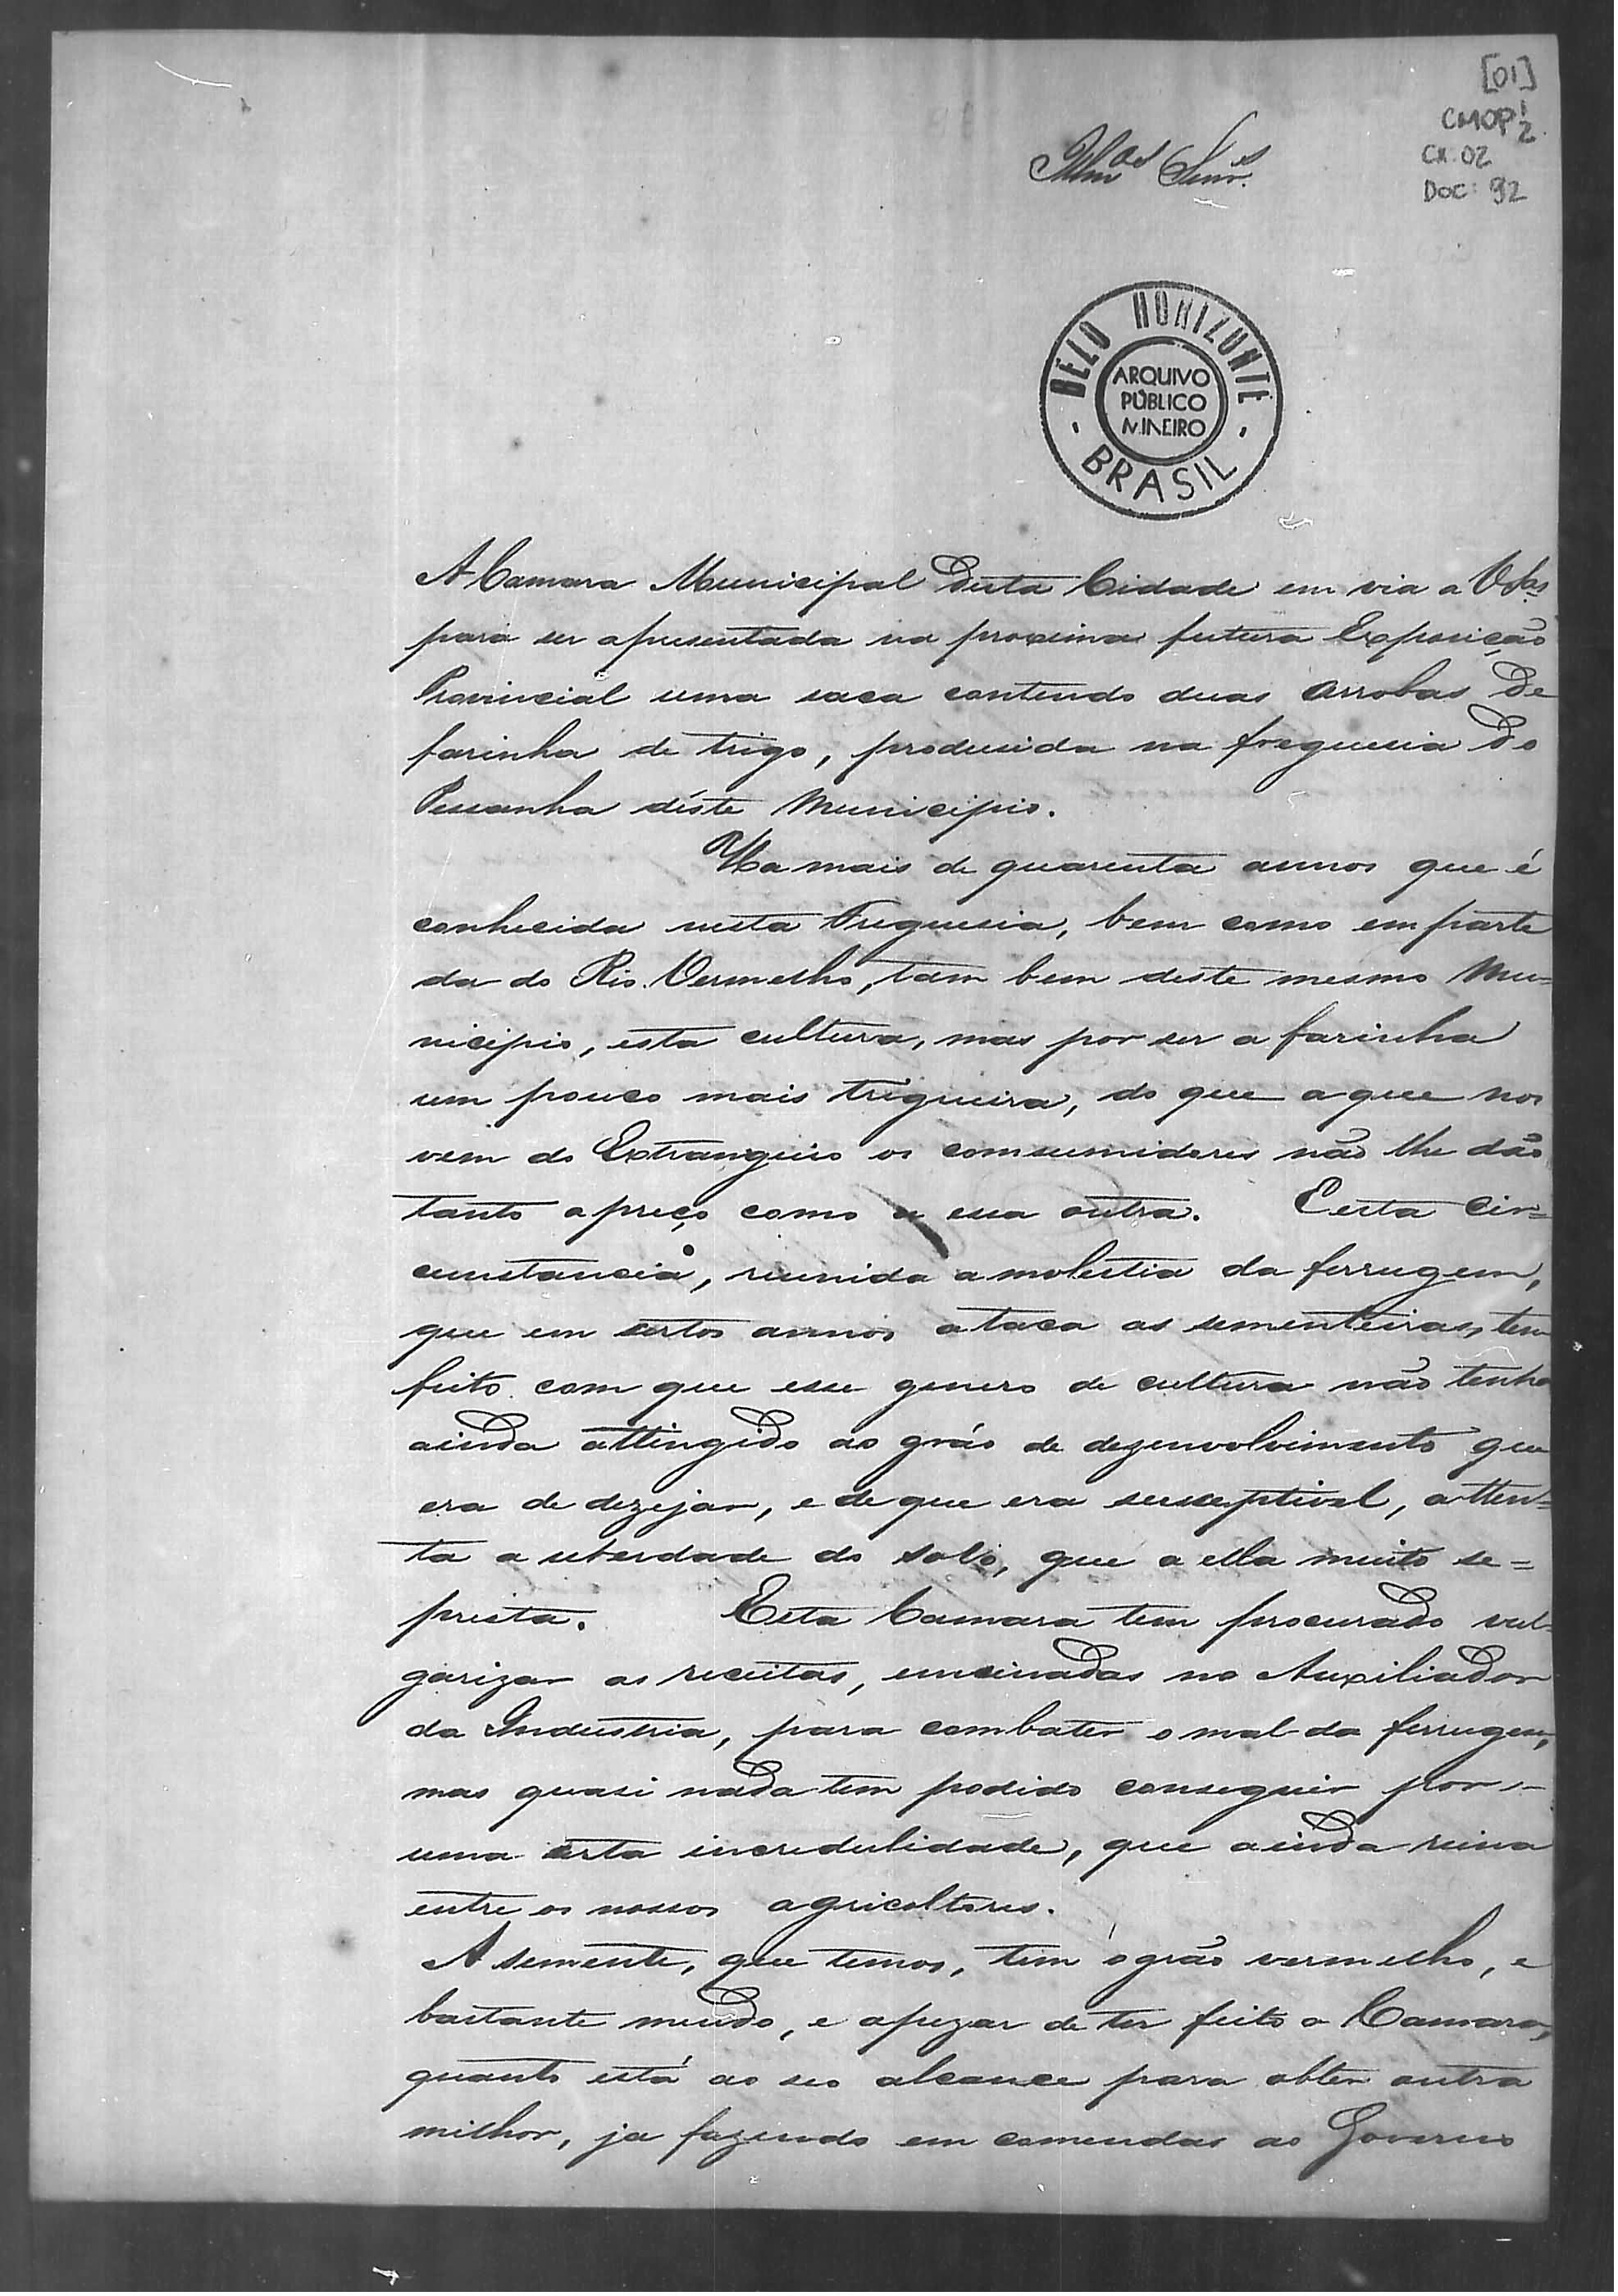 [01]
CMOP 1/2
CX: 02
DOC: 92
Illm.os Senr.s
BELO HORIZONTE
ARQUIVO
PÚBLICO
MINEIRO
BRASIL
A Camara Municipal desta Cidade em via a V.Sas
para ser apresentada na proxima futura Exposição
Provincial uma saca contendo duas arrobas de
farinha de trigo, produsida na freguesia do
Pessanha déste Municipio.
Ha mais de quarenta annos que é
conhecida nesta Freguesia, bem como em parte
da do Rio Vermelho, tam bem deste mesmo Mu=
nicipio, esta cultura, mas por ser a farinha
um pouco mais trigueira, do que a que nos
vem do Extrangeiro os comsumidores não lhe dão
tanto apreço como a essa outra. Esta cir=
cunstancia, reunida a molestia da ferrugem,
que em certos annos ataca as sementeiras, tem
feito com que esse genero de cultura não tenha
ainda attingido ao gráo de dezenvolvimento que
era de dezejar, e de que era susceptivel, atten=
ta a uberdade do solo, que a ella muito se=
presta. Esta Camara tem procurado vul-
garizar as receitas, ensinadas no Auxiliador
da Industria, para combater o mal da ferrugem,
mas quasi nada tem podido conseguir por -
uma certa incredulidade, que ainda reina
entre os nossos agricoltores.
A semente, que temos, tem o grão vermelho, e
bastante meudo, e apezar de ter feito a Camara,
quanto está ao seo alcance para obter outra
milhor, ja fazendo em comendas ao Governo